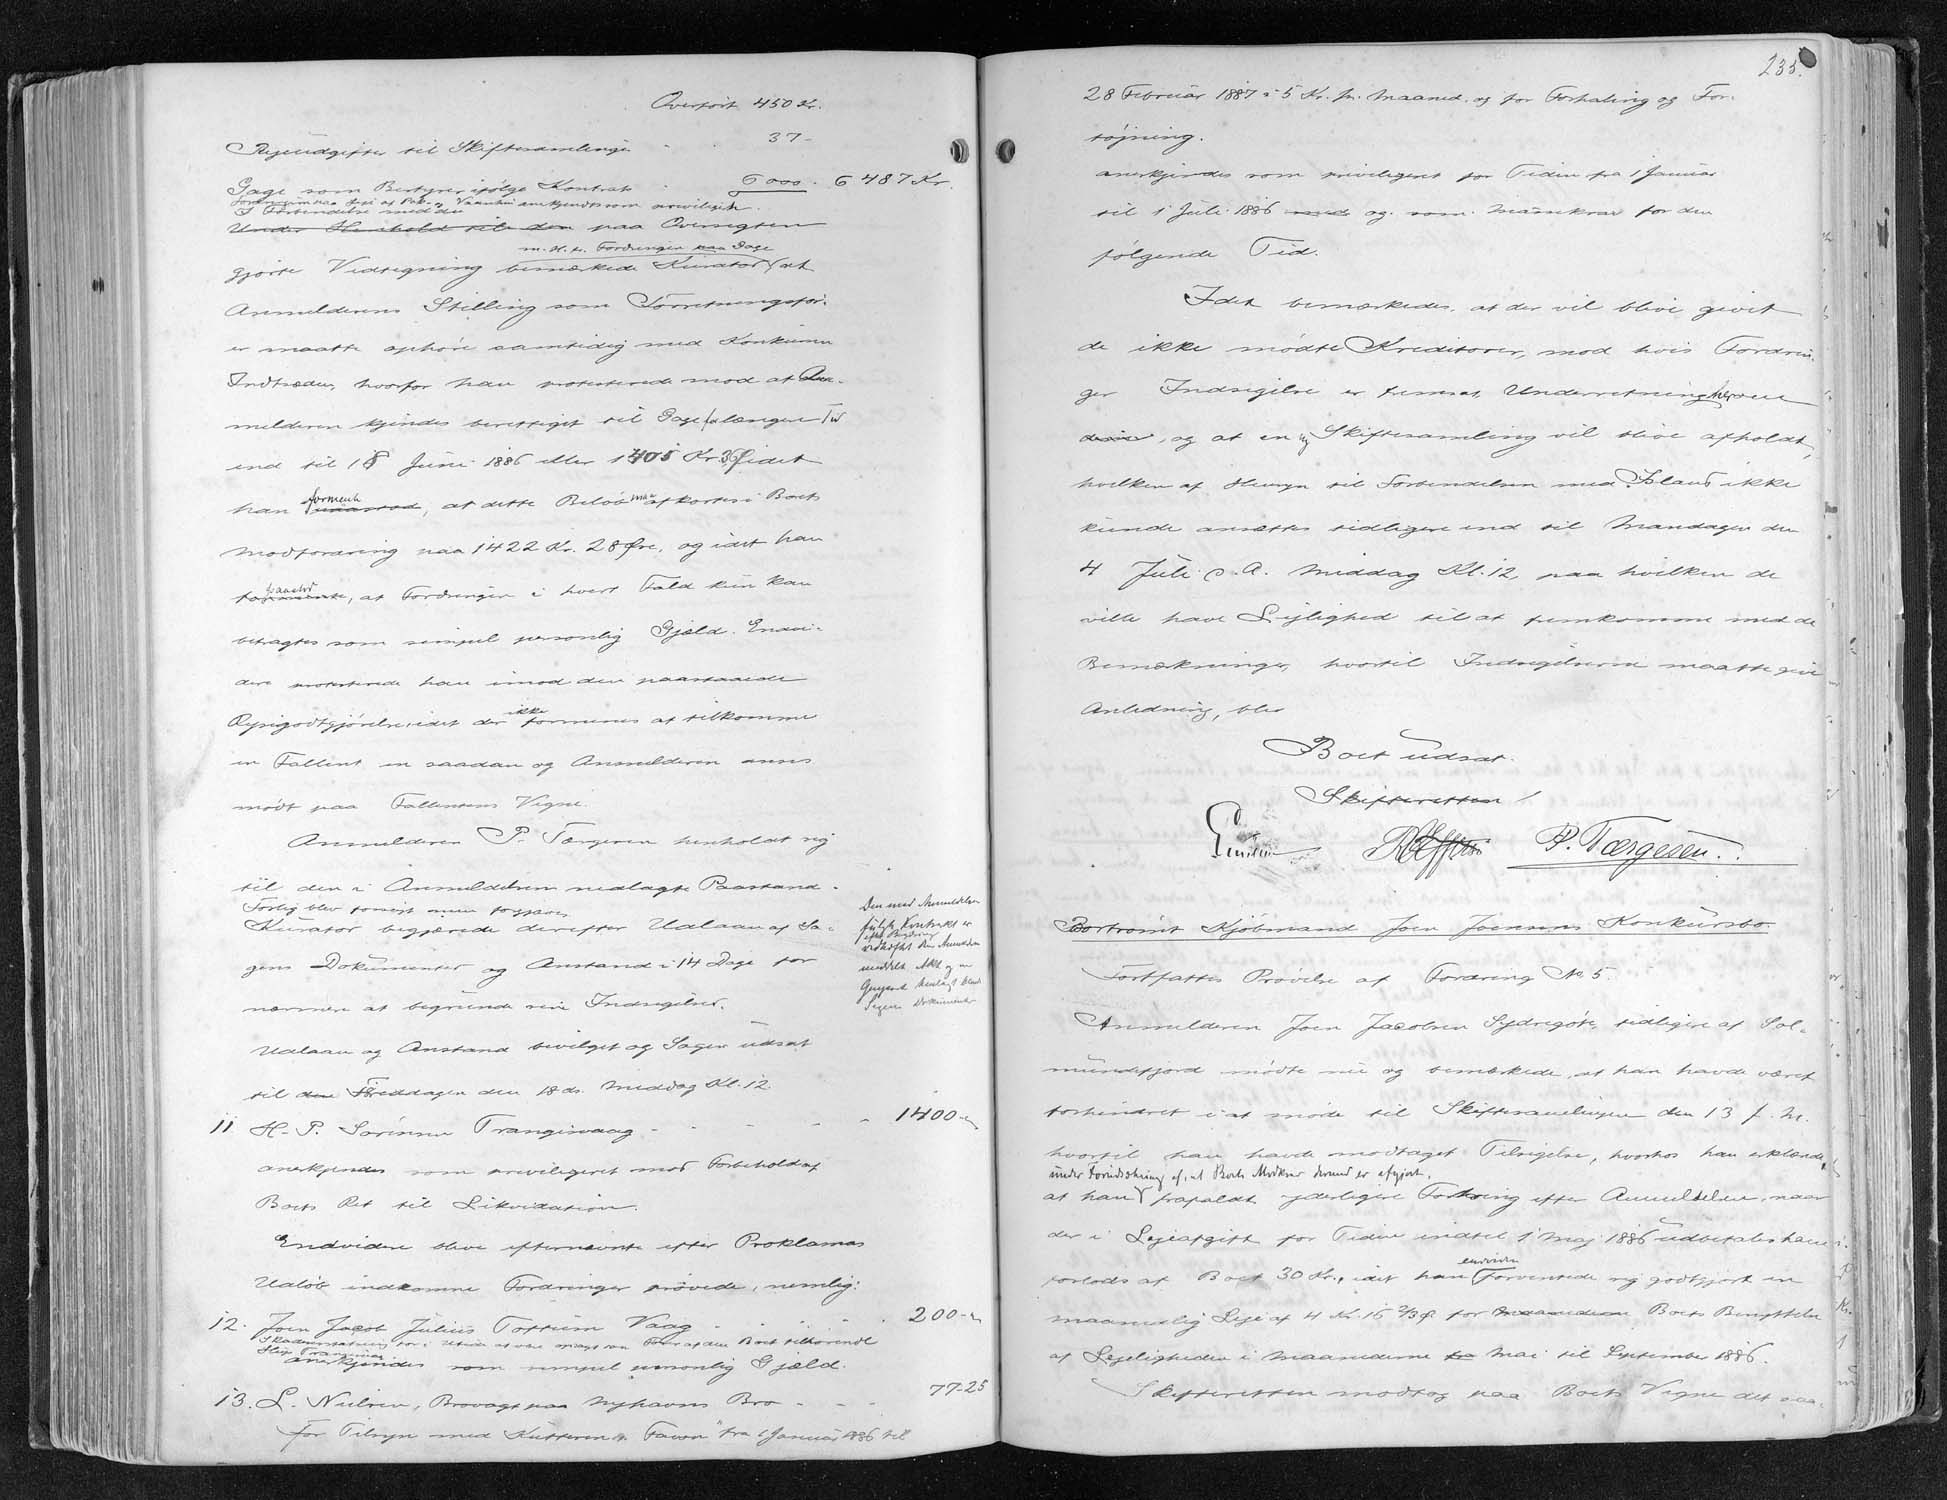 Overført 450 Kr.
Rejseudgifter til Skiftesamlinge - - 37 -
Gage som Bestyrer ifølge Kontrakt - 6000 - 6487 Kr.
anerkjendes som privilegeret.
I Forbindelse med den
Under Henhold til den paa Oversigten
m. H. t. Fordringen paa Gage
gjorte Vidtegning bemærkede Kurator at
Anmelderens Stilling som Forretningsfør-
er maatte ophøre samtidig med Konkursens
Indtræden, hvorfor han protesterede mod at An-
melderen kjendes berettiget til Gage for længere Tid
end til 18 Juni 1886 eller 1405 Kr. 36 Ø idet
formente
han paastod, at dette Beløb maa afkortes i Boets
Modfordring paa 1422 Kr. 28 Øre, og idet han
paastod
formente, at Fordringen i hvert Fald kun kan
betragtes som simpel personlig Gjæld. Endvi-
dere protesterede han imod den paastaaede
ikke
Rejsegodtgjørelse, idet der formenes at tilkomme
en Fallent en saadan og Anmelderen anses
mødt paa Fallentens Vegne.
Anmelderen P. Tærgesen henholdt sig
til den i Anmeldelsen nedlagte Paastand.
Forlig blev forsøgt men forgjæves
Kurator begjærede derefter Udlaan af Sa-
gens Dokumenter og Anstand i 14 Dage for
nærmere at begrunde sine Indsigelser.
Den med Anmeldelsen
fulgte Kontrakt er
efter Begjæring
Udlaan og Anstand bevilget og Sagen udsat
til den Fredagen den 18 ds. Middag Kl. 12
11 H. P. Sørensen Trangisvaag - - - - 1400 -
anerkjendes som privilegeret mod Forbehold af
Boets Ret til Likvidation.
Endvidere bleve efternævnte efter Proklamas
Udløb indkomne Fordringer prøvede, nemlig:
12. Joen Jacob Julius Toftum Vaag - - - - 200 -
anerkjendes som simpel personlig Gjæld.
13. L. Nielsen, Brovagt paa Nyhavns Bro - - - 77-25
for Tilsyn med Kutteren "Favn" fra 1 Januar 1886 til
235.
28 Februar 1887 à 5 Kr. pr. Maaned. og for Forhaling og For-
tøjning.
anerkjendes som privilegeret for Tiden fra 1 Januar
til 1 Juli 1886 og som Massekrav for den
følgende Tid.
Idet bemærkedes, at der vil blive givet
de ikke mødte Kreditorer, mod hvis Fordrin-
ger Indsigelse er fremsat, Underretning herom
, og at en ny Skiftesamling vil blive afholdt,
hvilken af Hensyn til Forbindelsen med Island ikke
kunde ansættes tidligere end til Mandagen den
4 Juli d. A. Middag Kl. 12, paa hvilken de
ville have Lejlighed til at fremkomme med de
Bemærkninger, hvortil Indsigelserne maatte give
Anledning, blev
Boet udsat.
Skifteretten
P. Tærgesen.
Bortrømt Kjøbmand Joen Joensens Konkursbo.
Fortsattes Prøvelse af Fordring No. 5
Anmelderen Joen Jacobsen Sydregøte, tidligere af Sol-
mundefjord mødte nu og bemærkede, at han havde været
forhindret i at møde til Skiftesamlingen den 13 f. M.
hvortil han havde modtaget Tilsigelse, hvorhos han erklærede,
under Forudsætning af, at Boets Modkrav dermed er afgjort,
at han frafaldt yderligere Fordring efter Anmeldelsen, naar
der i Lejeafgift for Tiden indtil 1 Maj 1886 udbetales ham
endvidere
forlods af Boet 30 Kr., idet han forventede sig godtgjort en
maanedlig Leje af 4 Kr. 16 2/3 Ø for Maanederne Boets Benyttelse
af Lejeligheden i Maanederne fra Mai til September 1886.
Skifteretten modtog paa Boets Vegne det saa-